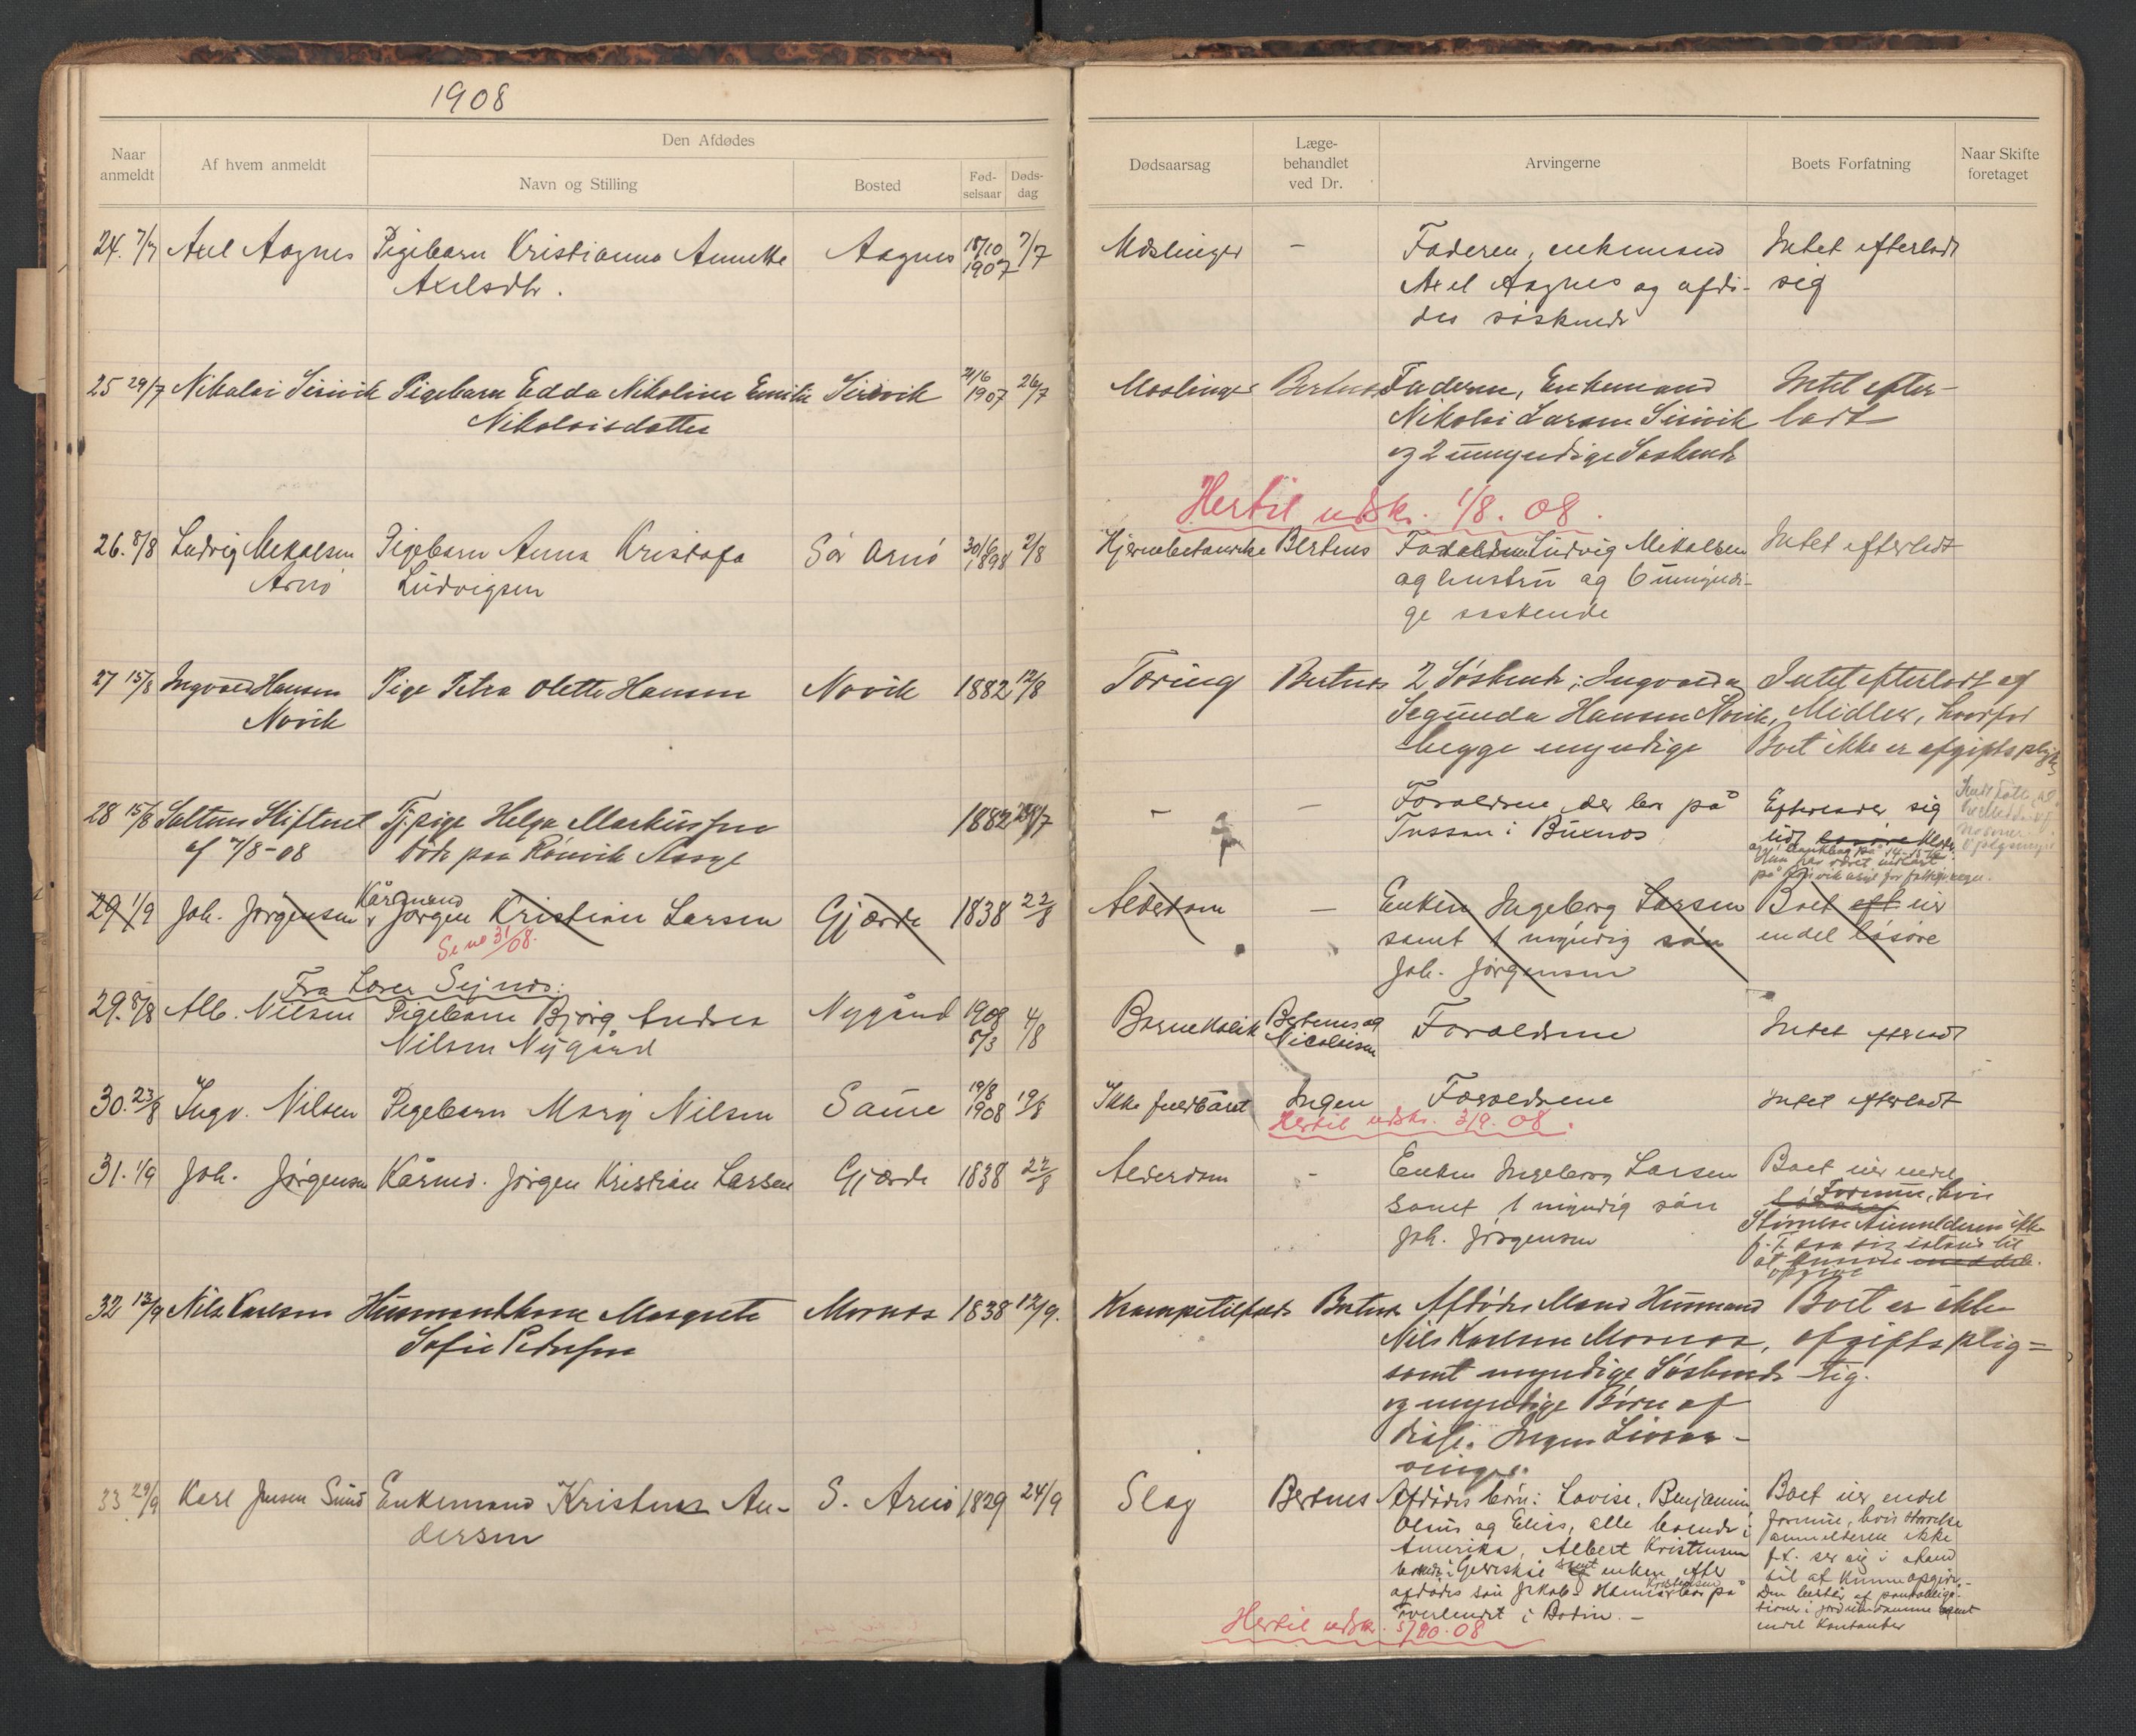 1908
Naar anmeldt
Af hvem anmeldt
Den Afdødes
Navn og Stilling
Bosted
Fød-selsaar
Døds-dag
Dødsaarsag
Læge-behandlet ved Dr.
Arvingerne
Boets Forfatning
Naar Skifte foretaget
24. 7/7 Axel Aagnes Pigebarn Kristianna Annette Aagnes 18/10 1907 7/7 Mæslinger – Faderen, enkemand Intet efterladt
Axelsdtr. Axel Aagnes og afdø- sig
des søskende
25 29/7 Nikolai Seivik Pigebarn Edda Nikoline Emilie Seivik 21/6 1907 26/7 Mæslinger Bertnes Faderen, Enkemand Intet efter-
Nikolaisdatter Nikolai Larsen Seivik ladt
og 2 umyndige Søskende
Hertil udskr. 1/8. 08.
26. 8/8 Ludvig Mikalsen Pigebarn Anna Kristofa Sör Arnö 30/6 1898 2/8 Hjernebetændelse Bertnes Forældrene Ludvig Mikalsen Intet efterladt
Arnö Ludvigsen og hustru og 6 umyndi-
ge søskende
27 15/8 Ingvald Hansen Pige Petra Olette Hansen Novik 1882 12/8 Tæring Bertnes 2 Søskende; Ingvald og Intet efterladt af
Novik Segunda Hansen Novik, Midler, hvorfor
begge myndige Boet ikke er afgiftspligtig
28 15/8 Saltens Skifteret Tj.pige Helga Markussen 1882 29/7 – – Forældrene der bor på Efterlader sig
af 7/8-08 døde paa Rønvik Asyl Tussan i Buxnes lidt løsøre klæder
29 1/9 Joh. Jørgensen Kårmand Jørgen Kristian Larsen Gjærde 1838 22/8 Alderdom – Enken Ingeborg Larsen Boet eft eier
Se no 31/08. samt 1 myndig søn endel løsøre
Joh. Jørgensen
29. 8/8 Alb. Nilsen Pigebarn Bjørg Andrea Nygård 1908 8/3 4/8 Barnekolik Bertnes og Forældrene Intet efterladt
Nilsen Nygård Nicolaisen
30. 23/8 Ingv. Nilsen Pigebarn Mary Nilsen Same 19/8 1908 19/8 Ikke fuldbåret Ingen Forældrene Intet efterladt
Hertil udskr. 3/9. 08.
31. 1/9 Joh. Jørgensen Kårmd. Jørgen Kristian Larsen Gjærde 1838 22/8 Alderdom – Enken Ingeborg Larsen Boet eier endel
samt 1 myndig søn løsøre Formue, hvis
Joh. Jørgensen Størrelse Anmelderen ikke
f.T. saa sig istand til
at kunne meddele.
opgive
32 13/9 Nils Karlsen Husmandskone Margrete Mornes 1838 12/9. Krampetilfælde Bertnes Afdødes Mand Husmand Boet er ikke
Sofie Pedersen Nils Karlsen Mornes, afgiftsplig=
samt myndige Søskende tig.
og myndige Børn af
disse. Ingen Livsar-
vinger.
33 29/9 Karl Jensen Sund Enkemand Kristen An- S. Arnö 1829 24/9 Slag Bertnes Afdødes børn: Lovise, Benjamin, Boet eier endel
dersen Olaus og Elias, alle boende i formue, hvis størrelse
Amerika, Albert Kristensen anmelderen ikke
boende i samt enken efter f.t. ser sig i stand
afdødes søn Jakob Kristensen bor på til at kunne opgive.-
i Bodin. – Den består af pantobliga-
tioner i jordeiendomme samt
endel kontanter
Hertil udskr. 5/10. 08